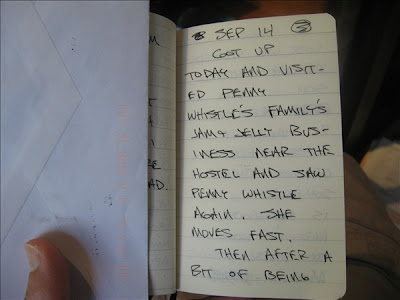 SEP 14
GOT UP
TODAY AND VISIT-
ED PENNY
WHISTLE'S FAMILY'S
JAM & JELLY BUS-
INESS NEAR THE
HOSTEL AND SAW
PENNY WHISTLE
AGAIN. SHE
MOVES FAST.
THEN AFTER A
BIT OF BEING